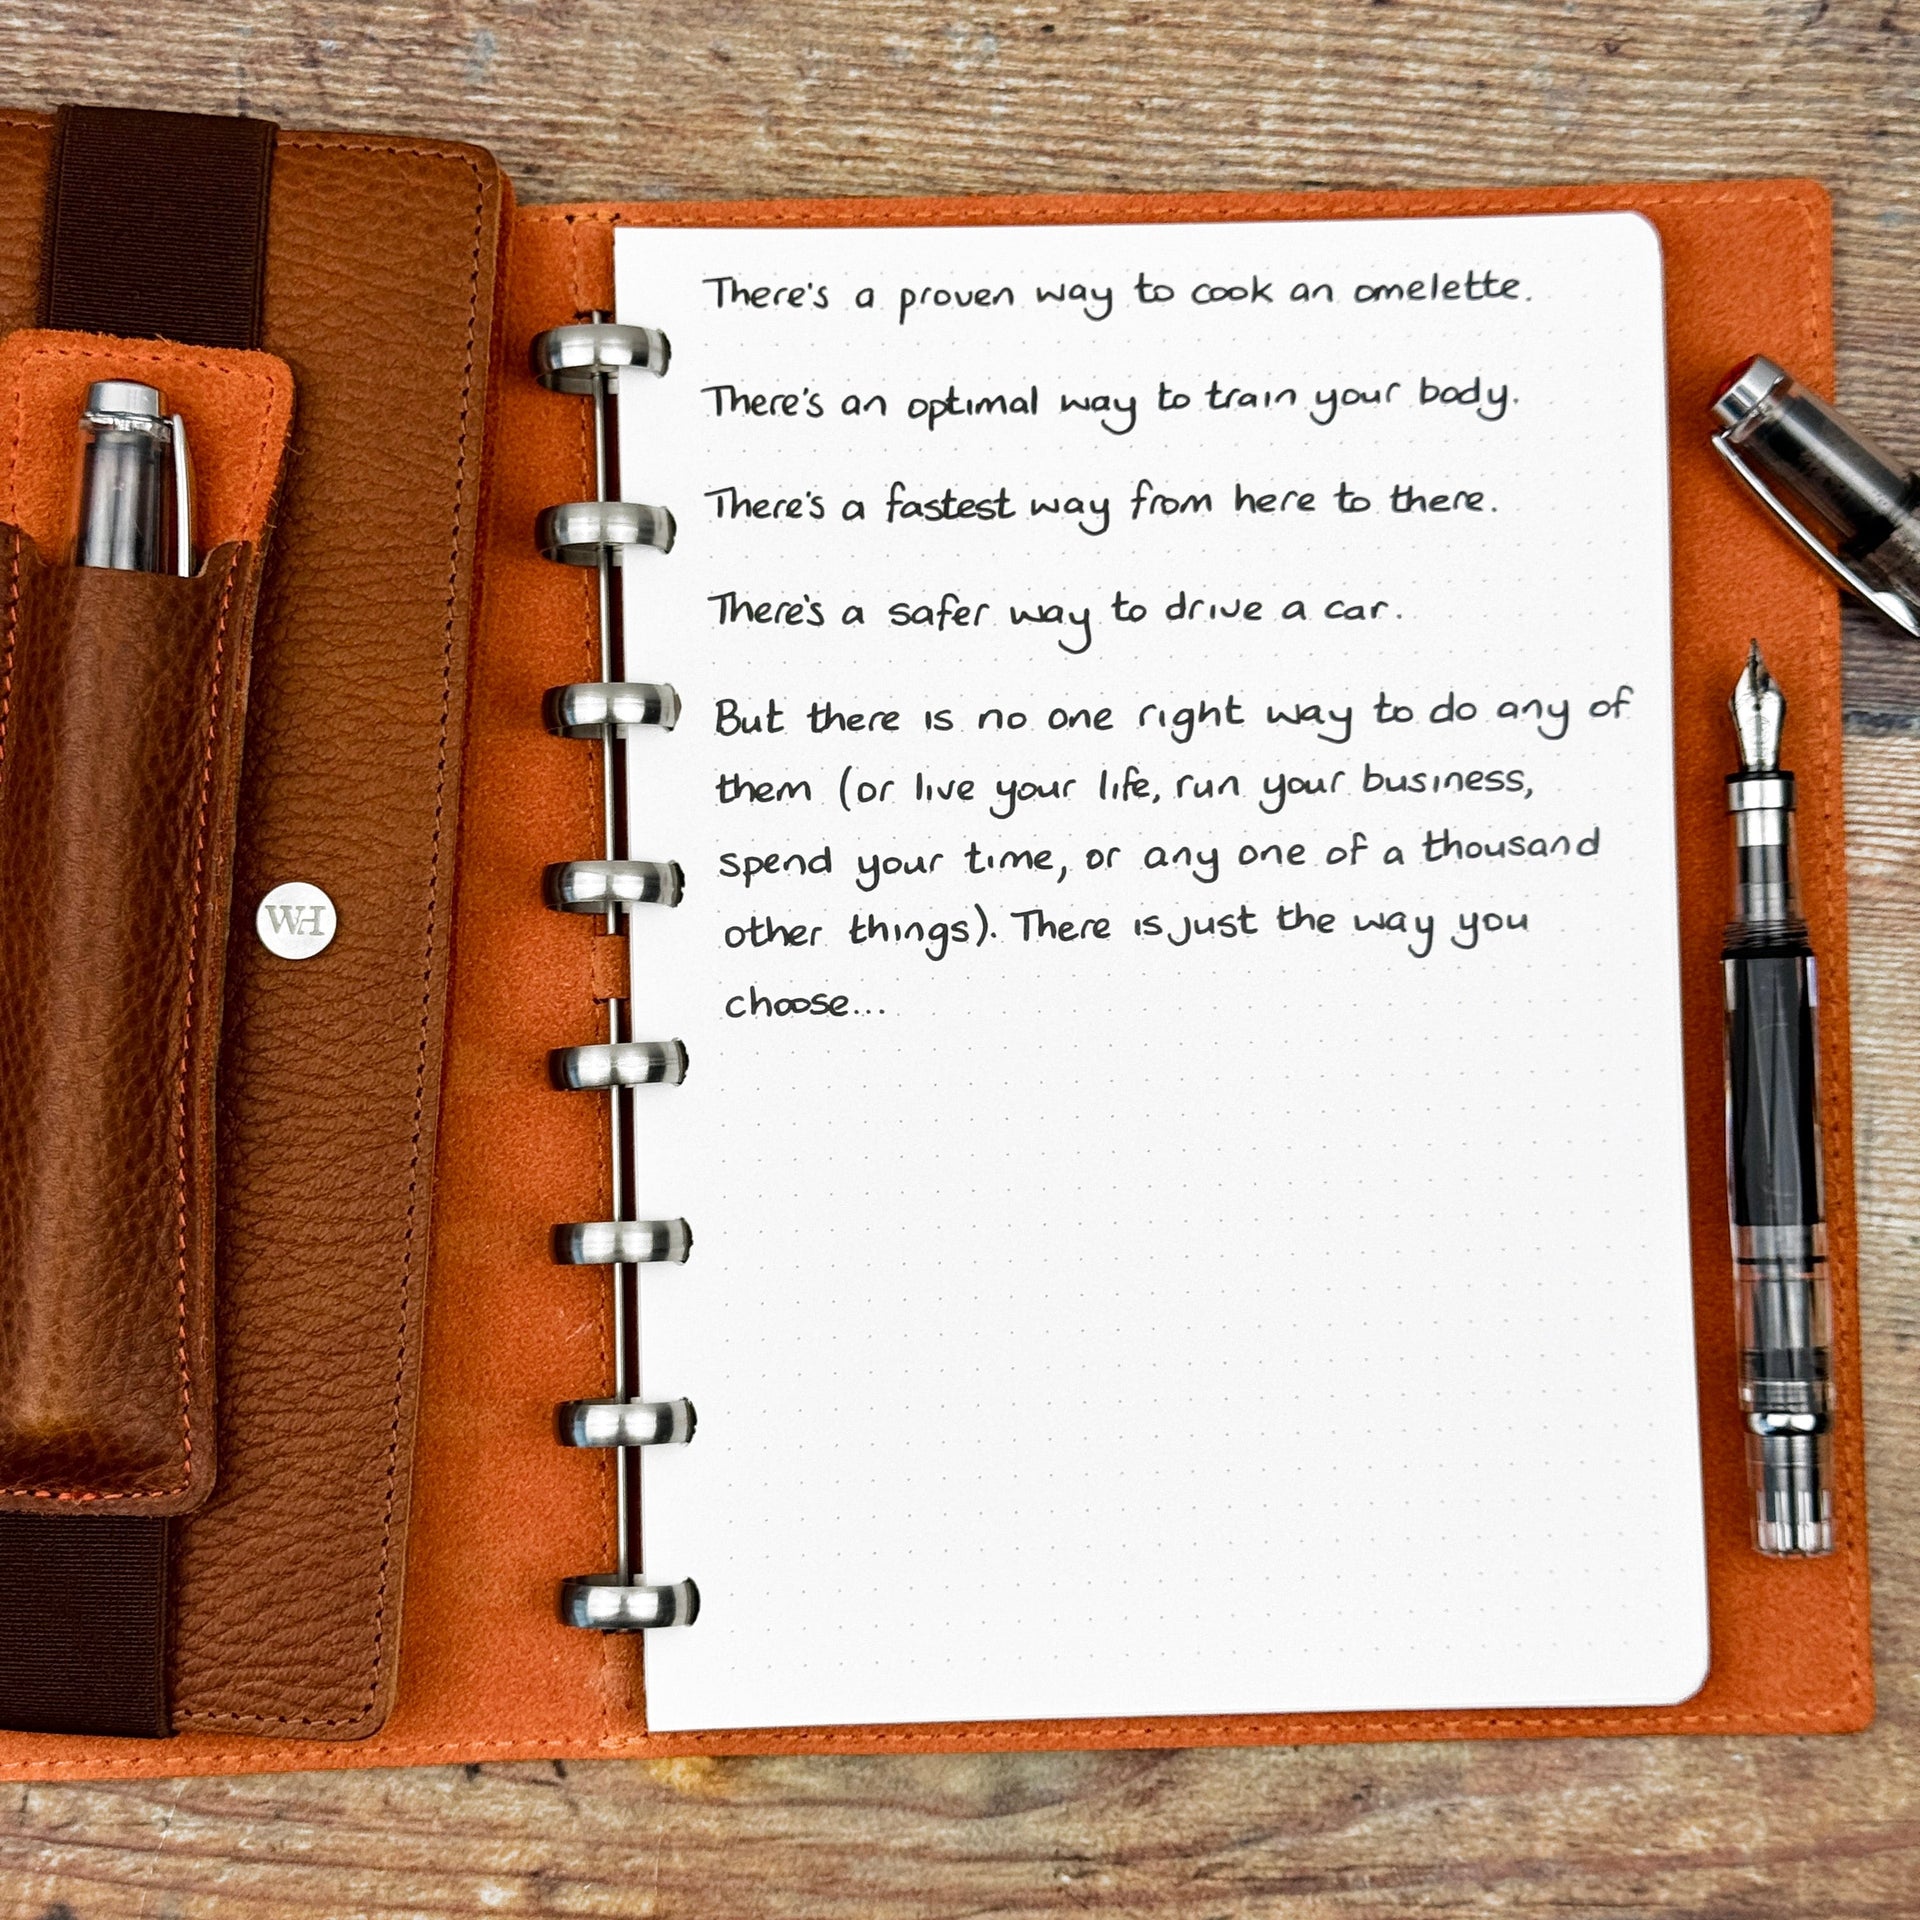 There's a proven way to cook an omelette.
There's an optimal way to train your body.
There's a fastest way from here to there.
There's a safer way to drive a car.
But there is no one right way to do any of
them (or live your life, run your business,
spend your time, or any one of a thousand
other things). There is just the way you
choose...
WH